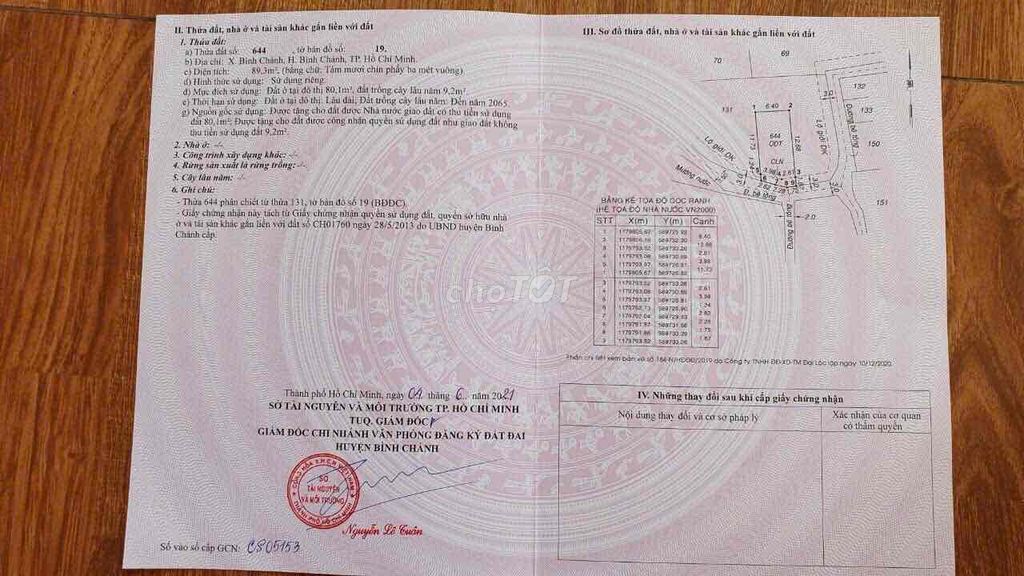 II. Thửa đất, nhà ở và tài sản khác gắn liền với đất
1. Thửa đất:
a) Thửa đất số: 644 , tờ bản đồ số: 19.
b) Địa chỉ: X. Bình Chánh, H. Bình Chánh, TP. Hồ Chí Minh.
c) Diện tích: 89,3m², (bằng chữ: Tám mươi chín phẩy ba mét vuông).
d) Hình thức sử dụng: Sử dụng riêng.
đ) Mục đích sử dụng: Đất ở tại đô thị 80,1m², đất trồng cây lâu năm 9,2m².
e) Thời hạn sử dụng: Đất ở tại đô thị: Lâu dài, Đất trồng cây lâu năm: Đến năm 2065.
g) Nguồn gốc sử dụng: Được tặng cho đất được Nhà nước giao đất có thu tiền sử dụng
đất 80,1m²; Được tặng cho đất được công nhận quyền sử dụng đất như giao đất không
thu tiền sử dụng đất 9,2m².
2. Nhà ở: -/-
3. Công trình xây dựng khác: -/-
4. Rừng sản xuất là rừng trồng: -/-
5. Cây lâu năm: -/-
6. Ghi chú:
- Thửa 644 phân chiết từ thửa 131, tờ bản đồ số 19 (BĐĐC).
- Giấy chứng nhận này tách từ Giấy chứng nhận quyền sử dụng đất, quyền sở hữu nhà
ở và tài sản khác gắn liền với đất số CH01760 ngày 28/5/2013 do UBND huyện Bình
Chánh cấp.
Thành phố Hồ Chí Minh, ngày 01 tháng 6 năm 2021
SỞ TÀI NGUYÊN VÀ MÔI TRƯỜNG TP. HỒ CHÍ MINH
TUQ. GIÁM ĐỐC
GIÁM ĐỐC CHI NHÁNH VĂN PHÒNG ĐĂNG KÝ ĐẤT ĐAI
HUYỆN BÌNH CHÁNH
SỞ
TÀI NGUYÊN
VÀ MÔI TRƯỜNG
Nguyễn Lê Tuấn
Số vào sổ cấp GCN: CS05153
III. Sơ đồ thửa đất, nhà ở và tài sản khác gắn liền với đất
70
69
132
133
150
151
131
1 6.40 2
644
ODT
CLN
11.73
12.68
3.0
Lộ giới ĐK
Đường bê tông
Lộ giới ĐK
Mương nước
Đ. bê tông
Đường bê tông
2.0
BẢNG KÊ TỌA ĐỘ GÓC RANH
(HỆ TỌA ĐỘ NHÀ NƯỚC VN2000)
STT X(m) Y(m) Cạnh
6.40
12.68
2.61
3.98
11.73
2.61
3.98
1.24
2.82
2.28
1.75
1.67
chợTỐT
Phân chi tiết xem bản vẽ số do Công ty TNHH ĐĐ-XD-TM Đại Lộc lập ngày 10/12/2020.
IV. Những thay đổi sau khi cấp giấy chứng nhận
Nội dung thay đổi và cơ sở pháp lý
Xác nhận của cơ quan
có thẩm quyền